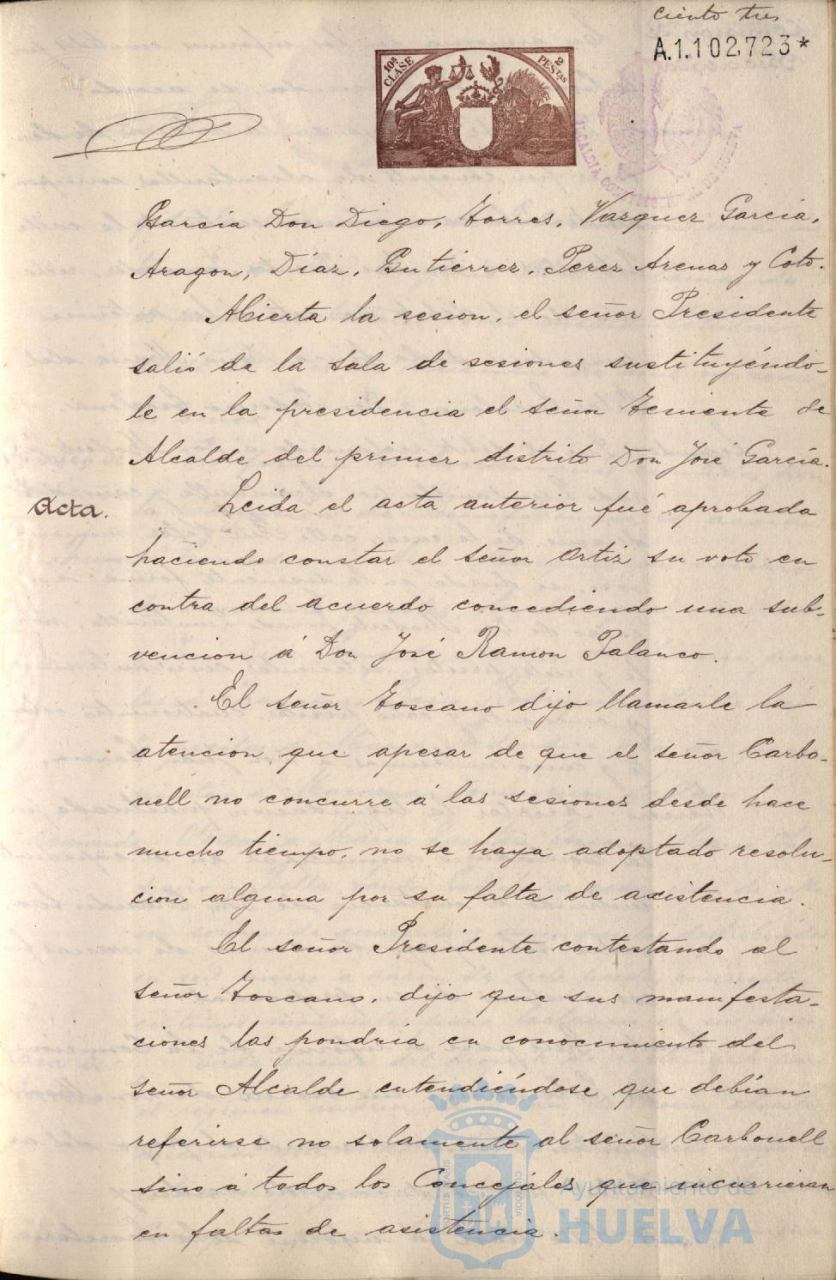 ciento tres
A.1.102,723*
10ª CLASE
2 PESTAS
Garcia Don Diego, Torres, Vazquez Garcia,
Aragon, Díaz, Gutiérrez, Perez Arenas y Coto.
Abierta la sesion, el señor Presidente
salió de la sala de sesiones sustituyéndo-
le en la presidencia el señor Teniente de
Alcalde del primer distrito Don José García.
Acta.
Leida el acta anterior fué aprobada
haciendo constar el señor Ortiz su voto en
contra del acuerdo concediendo una sub-
vencion á Don José Ramon Palanco.
El señor Toscano dijo llamarle la
atencion, que apesar de que el señor Carbo-
nell no concurre á las sesiones desde hace
mucho tiempo, no se haya adoptado resolu-
cion alguna por su falta de asistencia.
El señor Presidente contestando al
señor Toscano, dijo que sus manifesta-
ciones las pondría en conocimiento del
señor Alcalde entendiéndose que debían
referirse no solamente al señor Carbonell
sino á todos los Concejales que incurrieran
en faltas de asistencia.
Ayuntamiento de
HUELVA